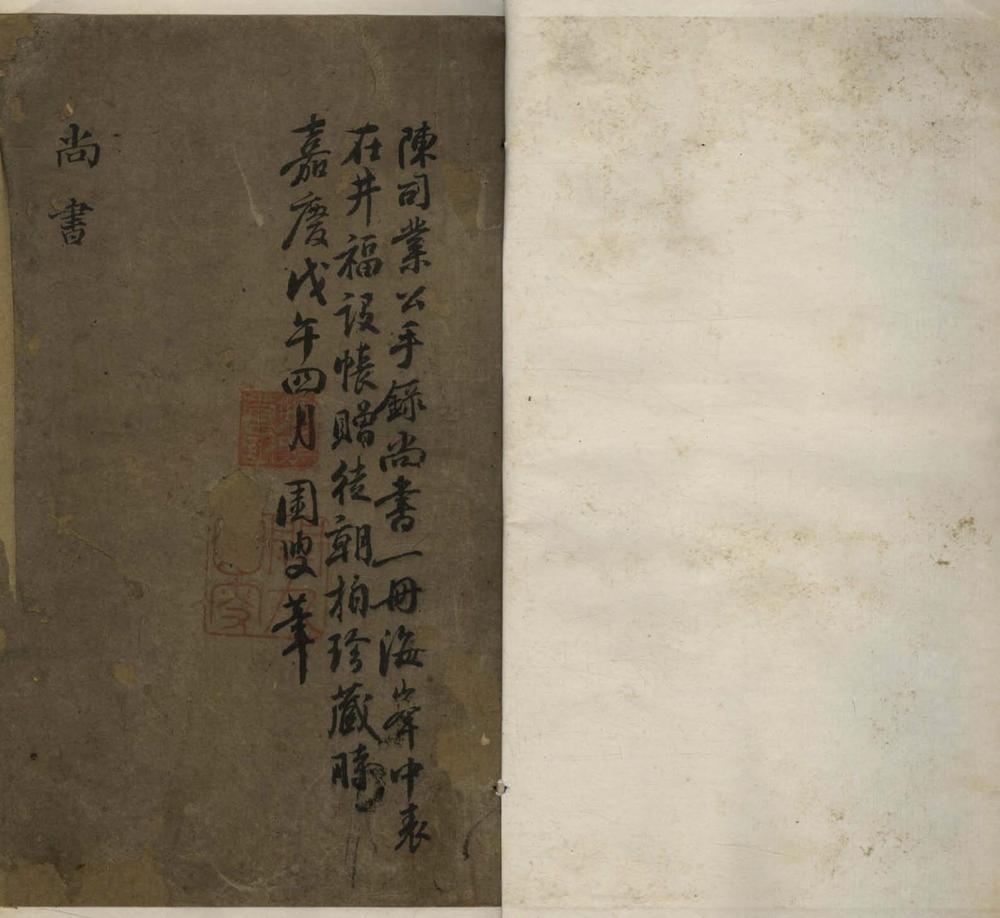 陳司業公手錄尚書一冊海峯中表
在井福設帳贈徒朝柏珍藏時
嘉慶戊午四月 圃叟筆
尚書